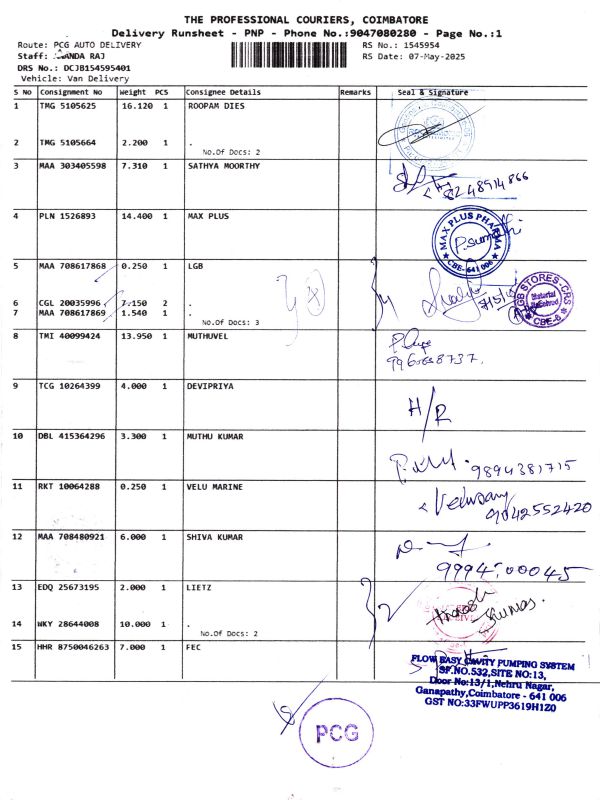 THE PROFESSIONAL COURIERS, COIMBATORE
Delivery Runsheet - PNP - Phone No.:9047080280 - Page No.:1
Route: PCG AUTO DELIVERY
RS No.: 1545954
Staff: ANANDA RAJ
RS Date: 07-May-2025
DRS No.: DCJB154595401
Vehicle: Van Delivery
S No Consignment No Weight PCS Consignee Details Remarks Seal & Signature
1 TMG 5105625 16.120 1 ROOPAM DIES
2 TMG 5105664 2.200 1 .
No.Of Docs: 2
3 MAA 303405598 7.310 1 SATHYA MOORTHY
8248914866
4 PLN 1526893 14.400 1 MAX PLUS
MAX PLUS PHARMA
P.Sumathi
CBE-641 006
5 MAA 708617868 0.250 1 LGB
6 CGL 20035996 7.150 2 .
7 MAA 708617869 1.540 1 .
No.Of Docs: 3
LGB STORES-CRS
Material
CBE-6
8 TMI 40099424 13.950 1 MUTHUVEL
9 TCG 10264399 4.000 1 DEVIPRIYA
H/R
10 DBL 415364296 3.300 1 MUTHU KUMAR
9894381715
11 RKT 10064288 0.250 1 VELU MARINE
9042552420
12 MAA 708480921 6.000 1 SHIVA KUMAR
9994500045
13 EDQ 25673195 2.000 1 LIETZ
14 WKY 28644008 10.000 1 .
No.Of Docs: 2
2
Kumar.
15 HHR 8750046263 7.000 1 FEC
FLOW EASY CAVITY PUMPING SYSTEM
SF.NO.532,SITE NO:13,
Door No:13/1,Nehru Nagar,
Ganapathy,Coimbatore - 641 006
GST NO:33FWUPP3619H1Z0
PCG